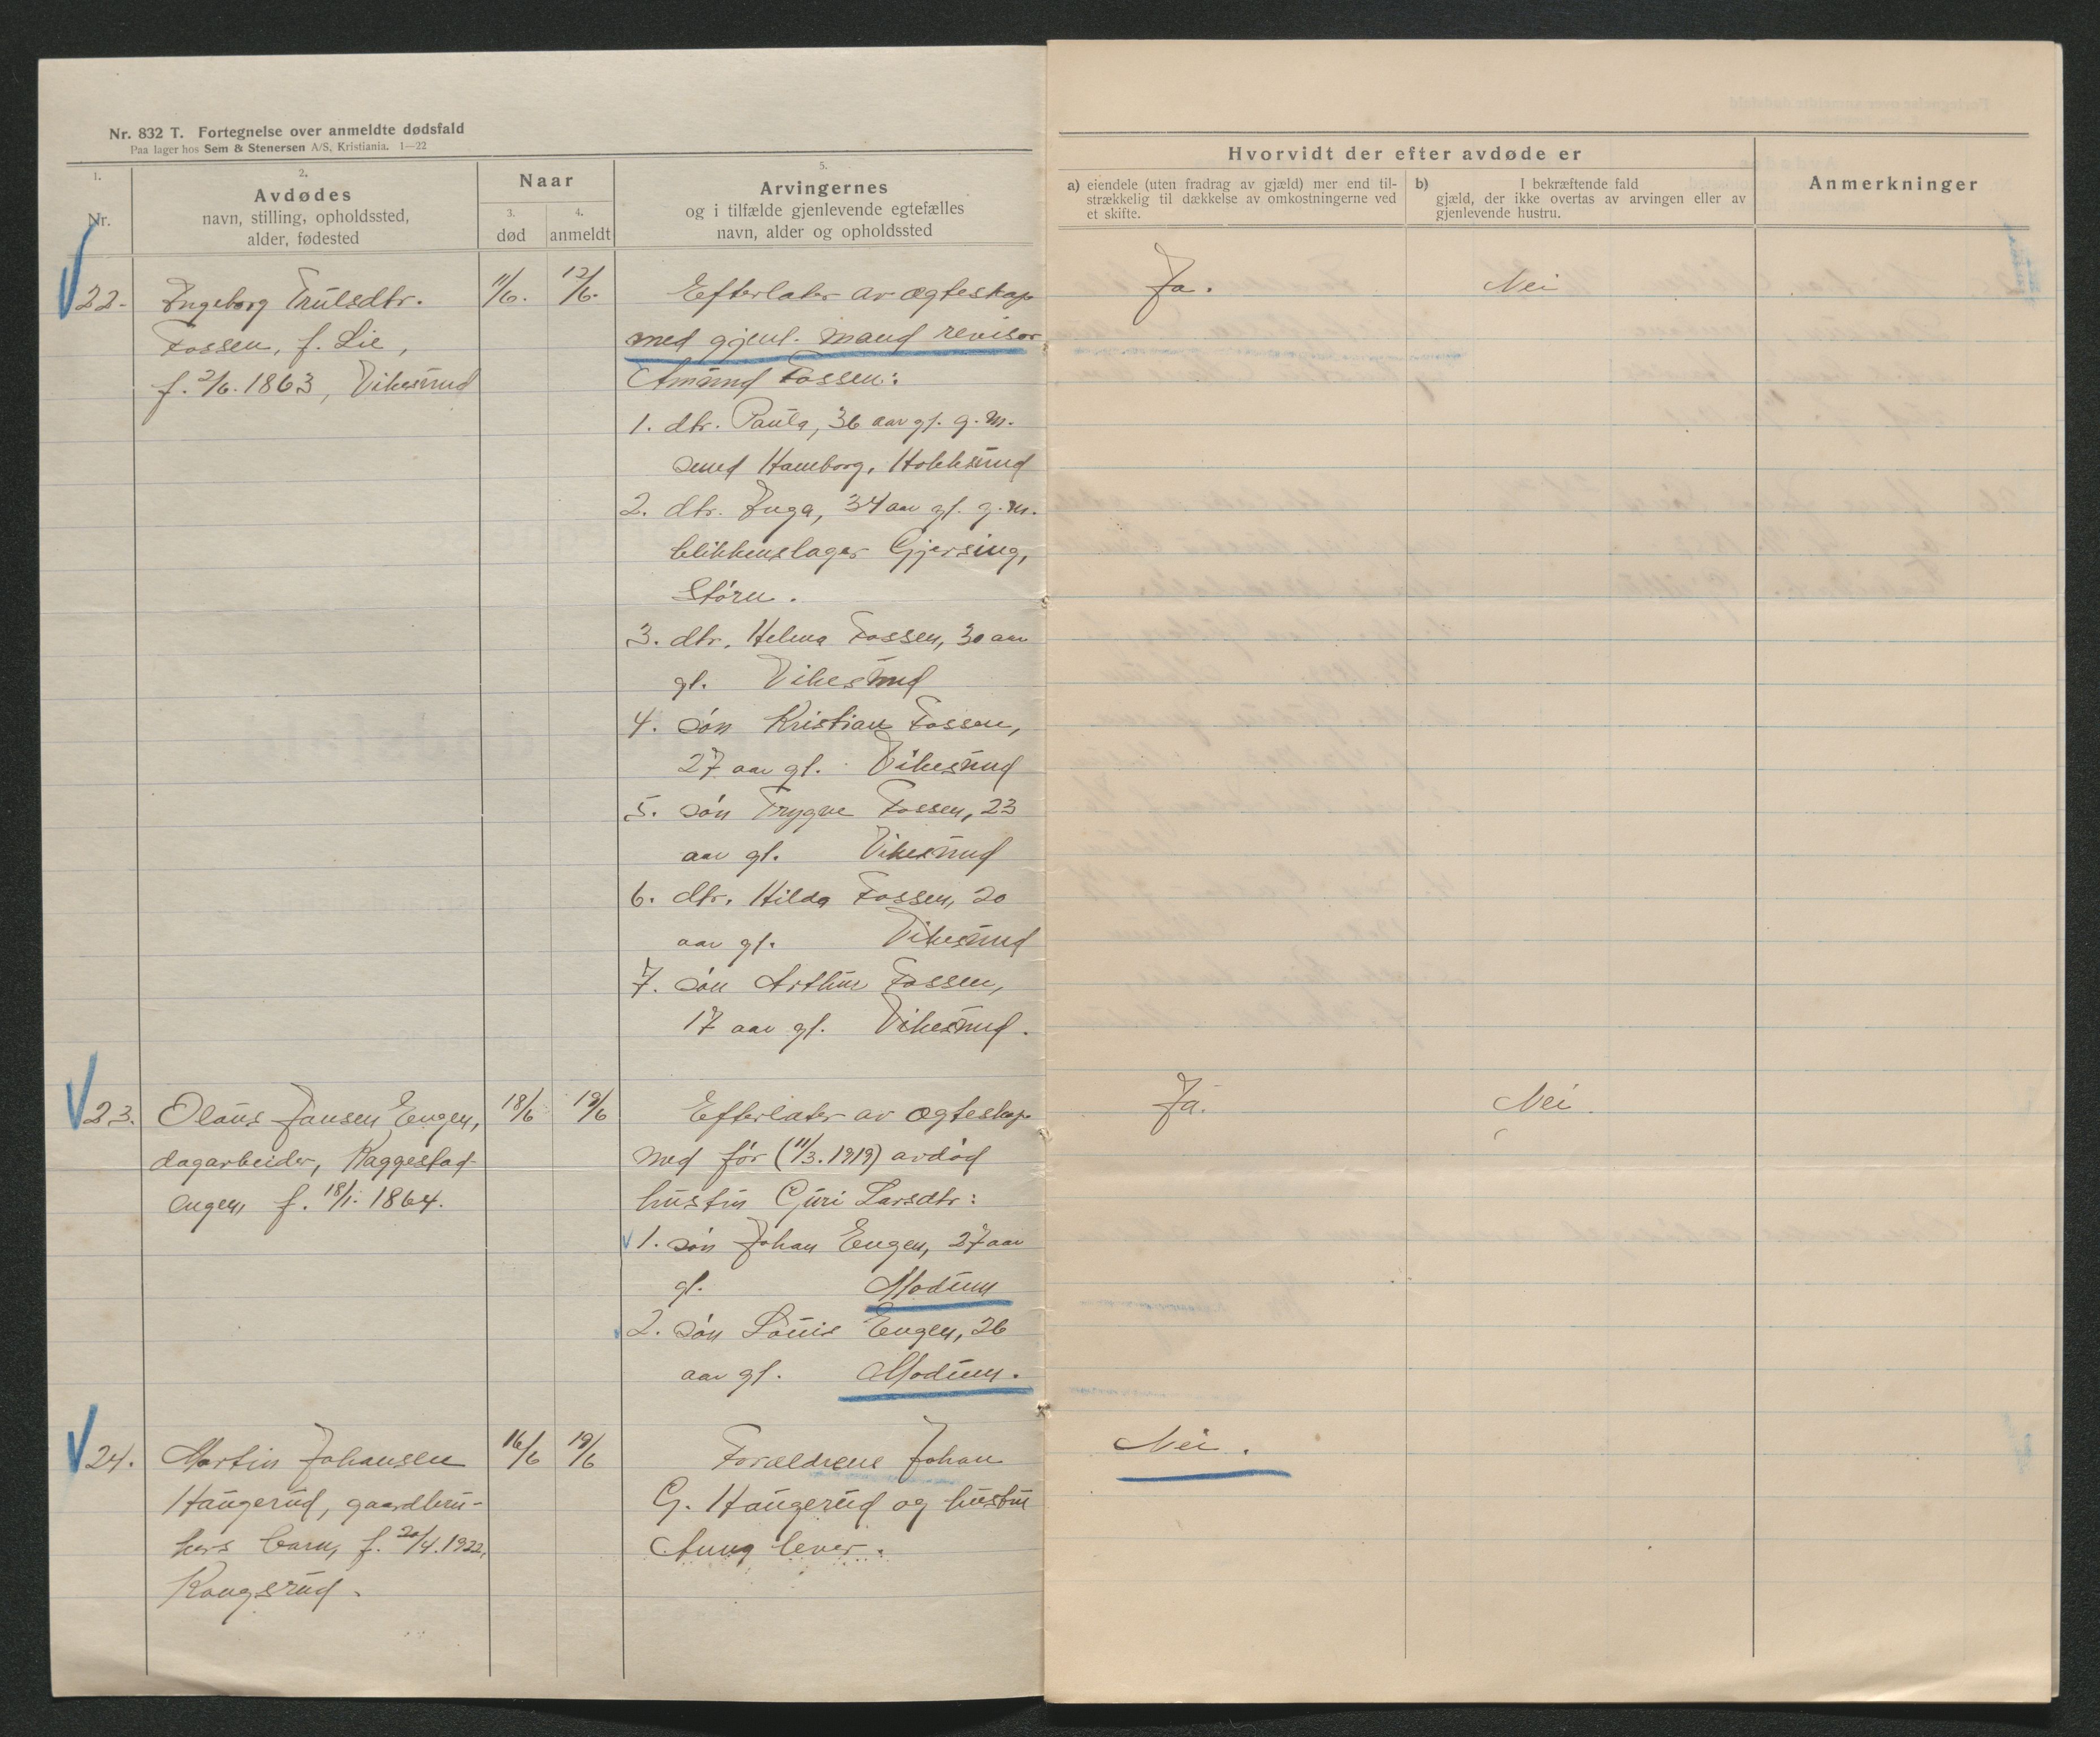 Nr. 832 T. Fortegnelse over anmeldte dødsfald
Paa lager hos Sem & Stenersen A/S, Kristiania. 1—22
1.
Nr.
2.
Avdødes
navn, stilling, opholdssted,
alder, fødested
Naar
3.
død
4.
anmeldt
5.
Arvingernes
og i tilfælde gjenlevende egtefælles
navn, alder og opholdssted
Hvorvidt der efter avdøde er
a) eiendele (uten fradrag av gjæld) mer end til-
strækkelig til dækkelse av omkostningerne ved
et skifte.
b) I bekræftende fald
gjæld, der ikke overtas av arvingen eller av
gjenlevende hustru.
Anmerkninger
22.
Ingeborg Trulsdtr.
Fossen, f. Lie,
f. 2/6. 1863, Vikesund
11/6.
12/6.
Efterlater av ægteskap
med gjenl. mand revisor
Amund Fossen:
1. dtr. Paula, 36 aar gl. g. m.
smed Hamborg, Hokksund
2. dtr. Inga, 34 aar gl. g. m.
blikkenslager Gjersing,
Støren.
3. dtr. Helma Fossen, 30 aar
gl. Vikesund
4. søn Kristian Fossen,
27 aar gl. Vikesund
5. søn Trygve Fossen, 23
aar gl. Vikesund
6. dtr. Hilda Fossen, 20
aar gl. Vikesund
7. søn Arthur Fossen,
17 aar gl. Vikesund.
Ja.
Nei
23.
Olaus Jansen Engen,
dagarbeider, Kaggestad-
engen, f. 18/1. 1864.
18/6
19/6
Efterlater av ægteskap
med før (11/3. 1919) avdød
hustru Guri Larsdtr:
1. søn Johan Engen, 27 aar
gl. Modum
2. søn Louis Engen, 26
aar gl. Modum.
Ja.
Nei.
24.
Martin Johansen
Haugerud, gaardbru-
kers barn, f. 20/4. 1922,
Kongsrud.
16/6
19/6
Forældrene Johan
G. Haugerud og hustru
Anna lever.
Nei.